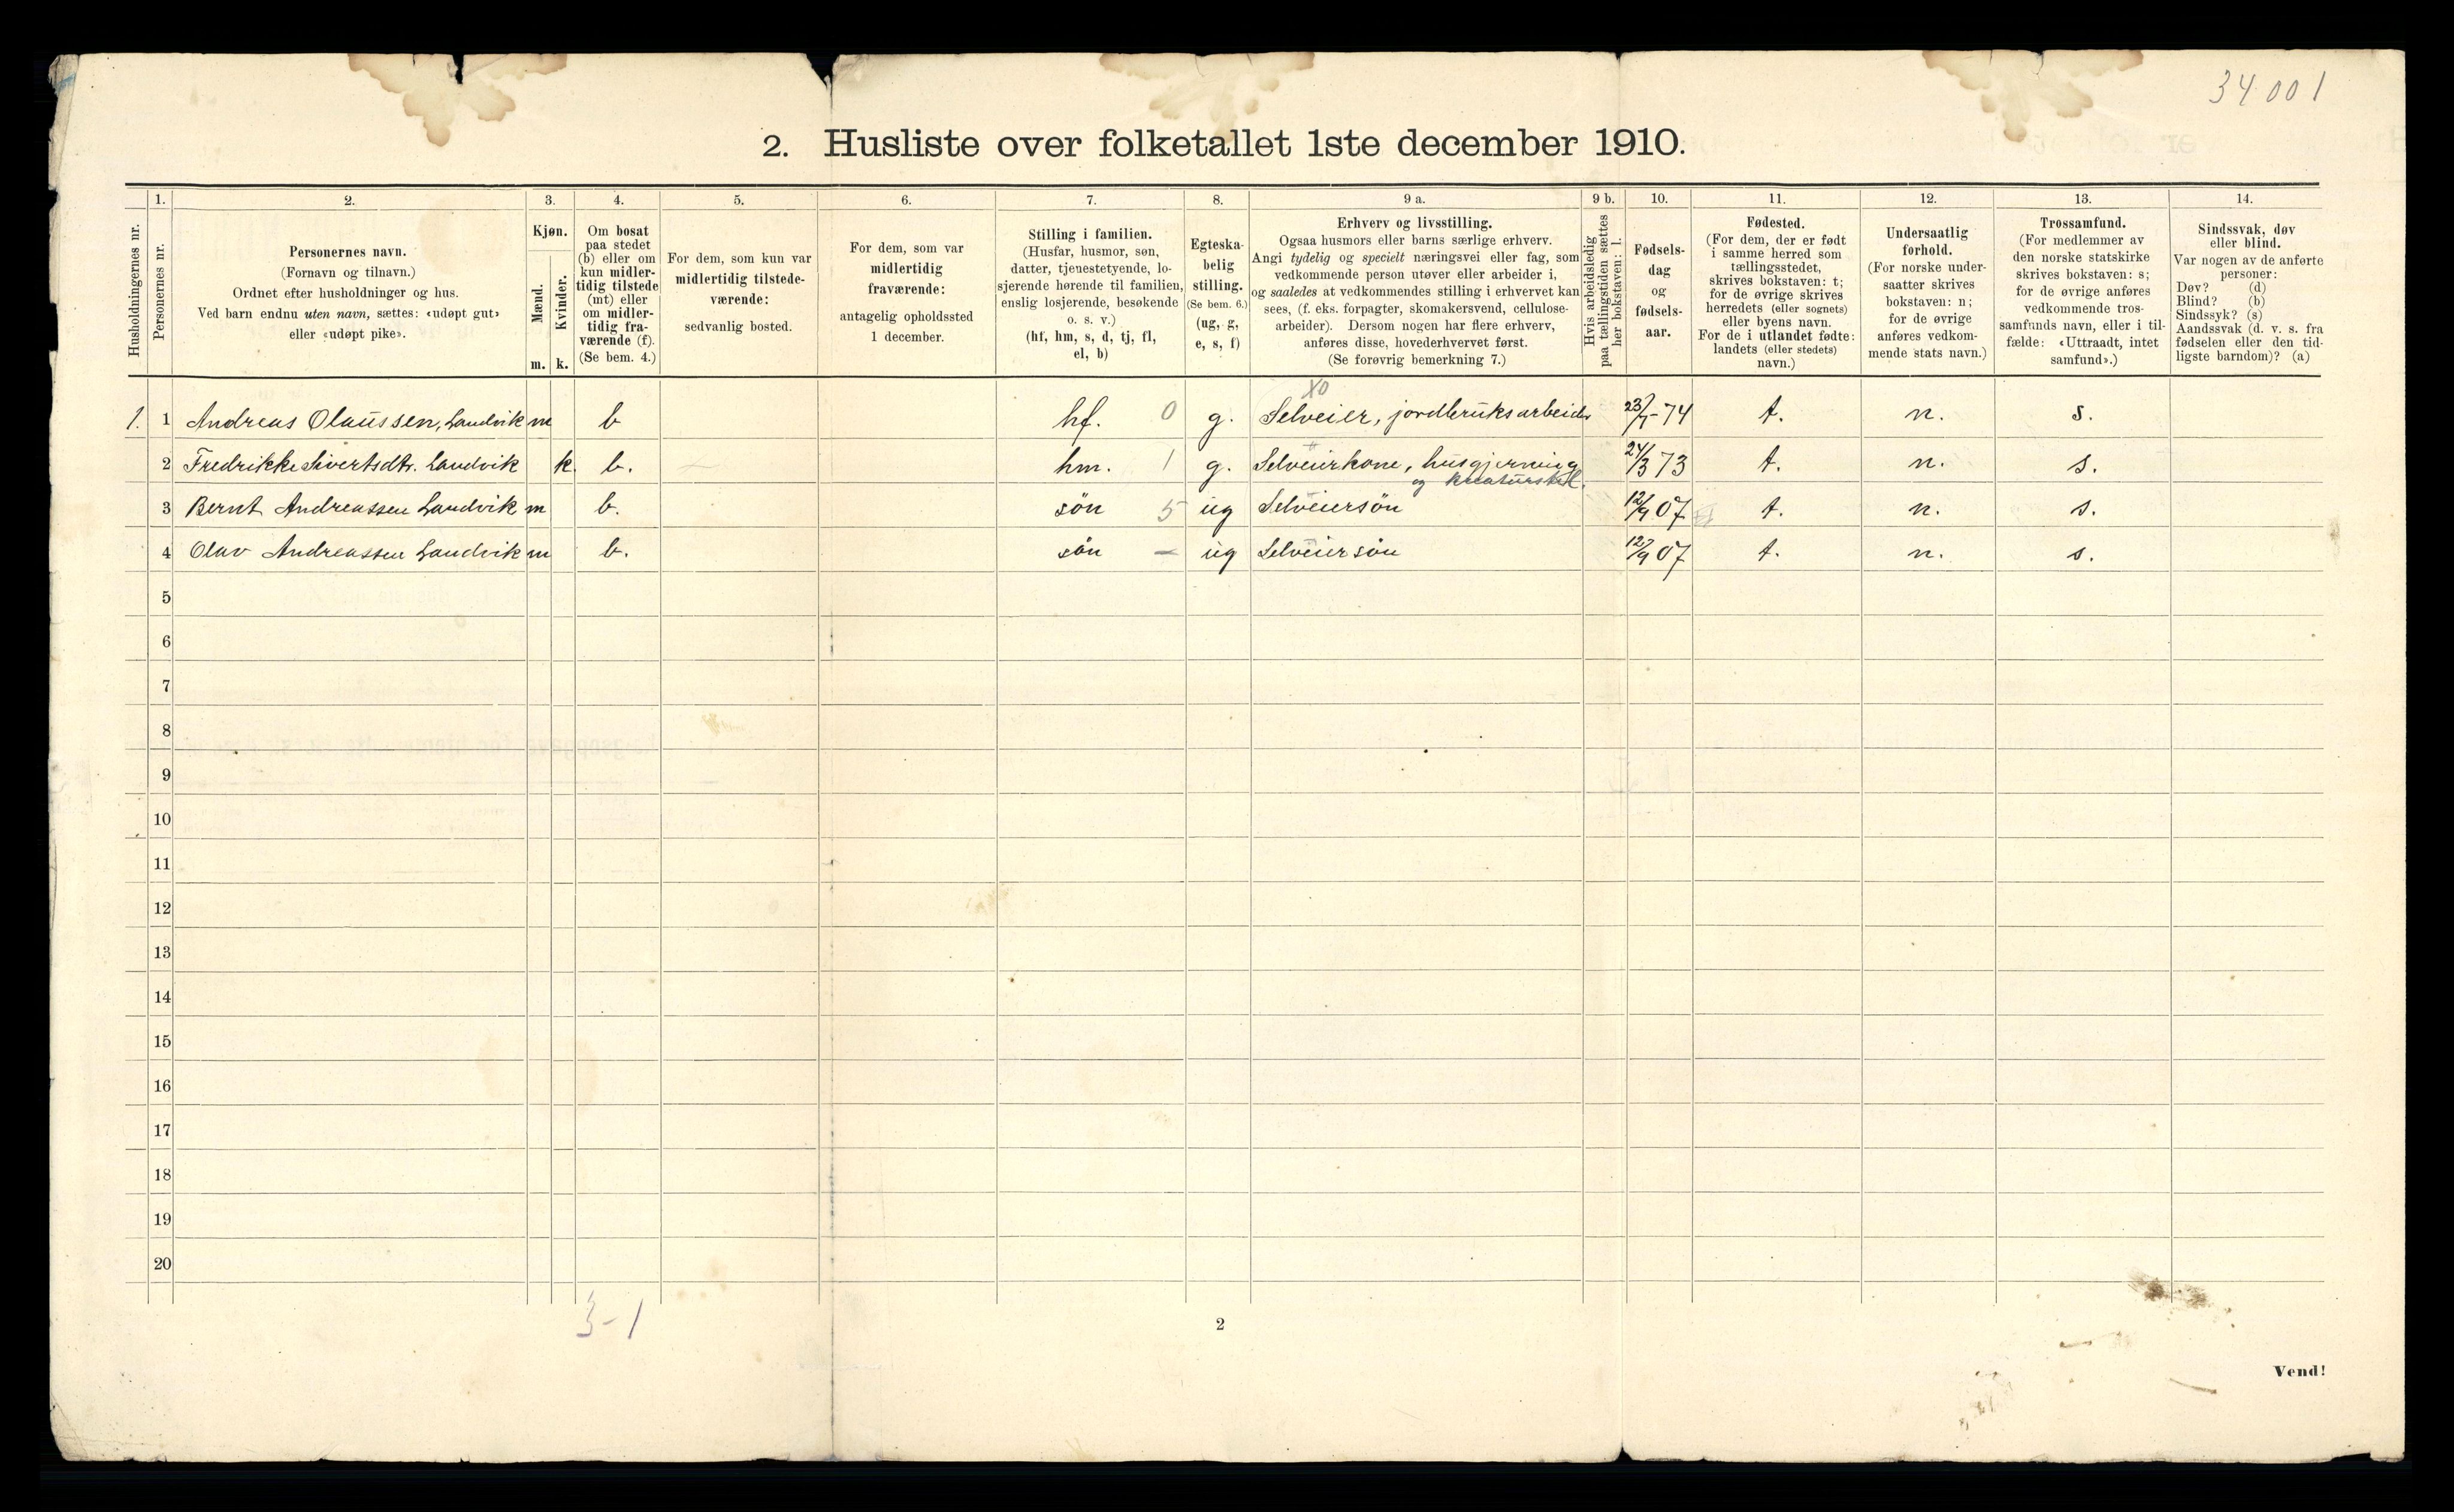 34 00 1
2. Husliste over folketallet 1ste december 1910.
Husholdningernes nr.
1.
Personernes nr.
2.
Personernes navn.
(Fornavn og tilnavn.)
Ordnet efter husholdninger og hus.
Ved barn endnu uten navn, sættes: «udøpt gut»
eller «udøpt pike».
3.
Kjøn.
Mænd.
Kvinder.
m. k.
4.
Om bosat
paa stedet
(b) eller om
kun midler-
tidig tilstede
(mt) eller
om midler-
tidig fra-
værende (f).
(Se bem. 4.)
5.
For dem, som kun var
midlertidig tilstede-
værende:
sedvanlig bosted.
6.
For dem, som var
midlertidig
fraværende:
antagelig opholdssted
1 december.
7.
Stilling i familien.
(Husfar, husmor, søn,
datter, tjenestetyende, lo-
sjerende hørende til familien,
enslig losjerende, besøkende
o. s. v.)
(hf, hm, s, d, tj, fl,
el, b)
8.
Egteska-
belig
stilling.
(Se bem. 6.)
(ug, g,
e, s, f)
9 a.
Erhverv og livsstilling.
Ogsaa husmors eller barns særlige erhverv.
Angi tydelig og specielt næringsvei eller fag, som
vedkommende person utøver eller arbeider i,
og saaledes at vedkommendes stilling i erhvervet kan
sees, (f. eks. forpagter, skomakersvend, cellulose-
arbeider). Dersom nogen har flere erhverv,
anføres disse, hovederhvervet først.
(Se forøvrig bemerkning 7.)
9 b.
Hvis arbeidsledig
paa tællingstiden sættes
her bokstaven: l.
10.
Fødsels-
dag
og
fødsels-
aar.
11.
Fødested.
(For dem, der er født
i samme herred som
tællingsstedet,
skrives bokstaven: t;
for de øvrige skrives
herredets (eller sognets)
eller byens navn.
For de i utlandet fødte:
landets (eller stedets)
navn.)
12.
Undersaatlig
forhold.
(For norske under-
saatter skrives
bokstaven: n;
for de øvrige
anføres vedkom-
mende stats navn.)
13.
Trossamfund.
(For medlemmer av
den norske statskirke
skrives bokstaven: s;
for de øvrige anføres
vedkommende tros-
samfunds navn, eller i til-
fælde: «Uttraadt, intet
samfund».)
14.
Sindssvak, døv
eller blind.
Var nogen av de anførte
personer:
Døv? (d)
Blind? (b)
Sindssyk? (s)
Aandssvak (d. v. s. fra
fødselen eller den tid-
ligste barndom)? (a)
X0
1. 1 Andreas Olaussen, Landvik m b hf. 0 g. Selveier, jordbruksarbeider 23/7-74 t. n. s.
2 Fredrikke Sivertsdtr. Landvik k. b. hm. 1 g. Selveierkone, husgjerning 24/3 73 t. n. s.
og kreaturstell.
3 Bernt Andreassen Landvik m b. søn 5 ug Selveiersøn 12/9 07 t. n. s.
4 Olav Andreassen Landvik m b. søn — ug Selveiersøn 12/9 07 t. n. s.
5
6
7
8
9
10
11
12
13
14
15
16
17
18
19
20
3-1
2
Vend!